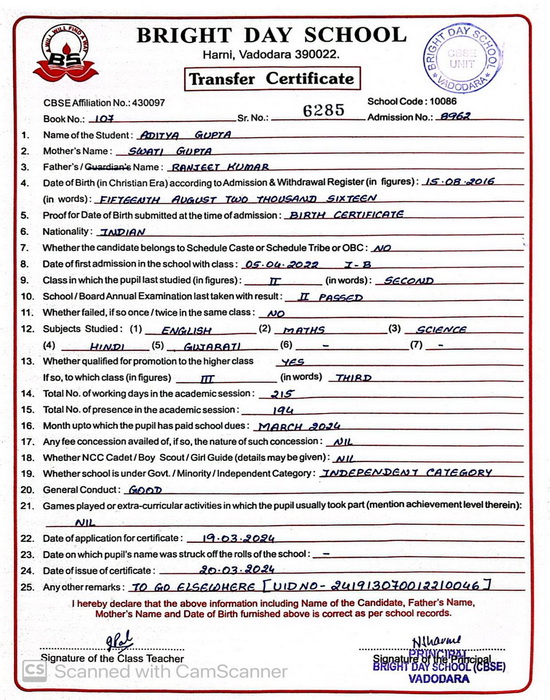 WILL WILL FIND A WAY
BS
BRIGHT DAY SCHOOL
Harni, Vadodara 390022.
Transfer Certificate
BRIGHT DAY SCHOOL
CBSE
UNIT
VADODARA
CBSE Affiliation No.: 430097
School Code : 10086
Book No.: 107 Sr. No.: 6285 Admission No.: 8962
1. Name of the Student : ADITYA GUPTA
2. Mother's Name : SWATI GUPTA
3. Father's / Guardian's Name : RANJEET KUMAR
4. Date of Birth (in Christian Era) according to Admission & Withdrawal Register (in figures) : 15-08-2016
(in words) : FIFTEENTH AUGUST TWO THOUSAND SIXTEEN
5. Proof for Date of Birth submitted at the time of admission : BIRTH CERTIFICATE
6. Nationality : INDIAN
7. Whether the candidate belongs to Schedule Caste or Schedule Tribe or OBC : NO
8. Date of first admission in the school with class : 05-04-2022 I-B
9. Class in which the pupil last studied (in figures) : II (in words) : SECOND
10. School / Board Annual Examination last taken with result : II PASSED
11. Whether failed, if so once / twice in the same class : NO
12. Subjects Studied : (1) ENGLISH (2) MATHS (3) SCIENCE
(4) HINDI (5) GUJARATI (6) - (7) -
13. Whether qualified for promotion to the higher class YES
If so, to which class (in figures) III (in words) THIRD
14. Total No. of working days in the academic session : 215
15. Total No. of presence in the academic session : 194
16. Month upto which the pupil has paid school dues : MARCH 2024
17. Any fee concession availed of, if so, the nature of such concession : NIL
18. Whether NCC Cadet / Boy Scout / Girl Guide (details may be given) : NIL
19. Whether school is under Govt. / Minority / Independent Category : INDEPENDENT CATEGORY
20. General Conduct : GOOD
21. Games played or extra-curricular activities in which the pupil usually took part (mention achievement level therein) :
NIL
22. Date of application for certificate : 19-03-2024
23. Date on which pupil's name was struck off the rolls of the school : -
24. Date of issue of certificate : 20-03-2024
25. Any other remarks : TO GO ELSEWHERE [UID NO- 241913070012210046]
I hereby declare that the above information including Name of the Candidate, Father's Name,
Mother's Name and Date of Birth furnished above is correct as per school records.
Signature of the Class Teacher
Signature of the Principal
PRINCIPAL
BRIGHT DAY SCHOOL (CBSE)
VADODARA
CS Scanned with CamScanner